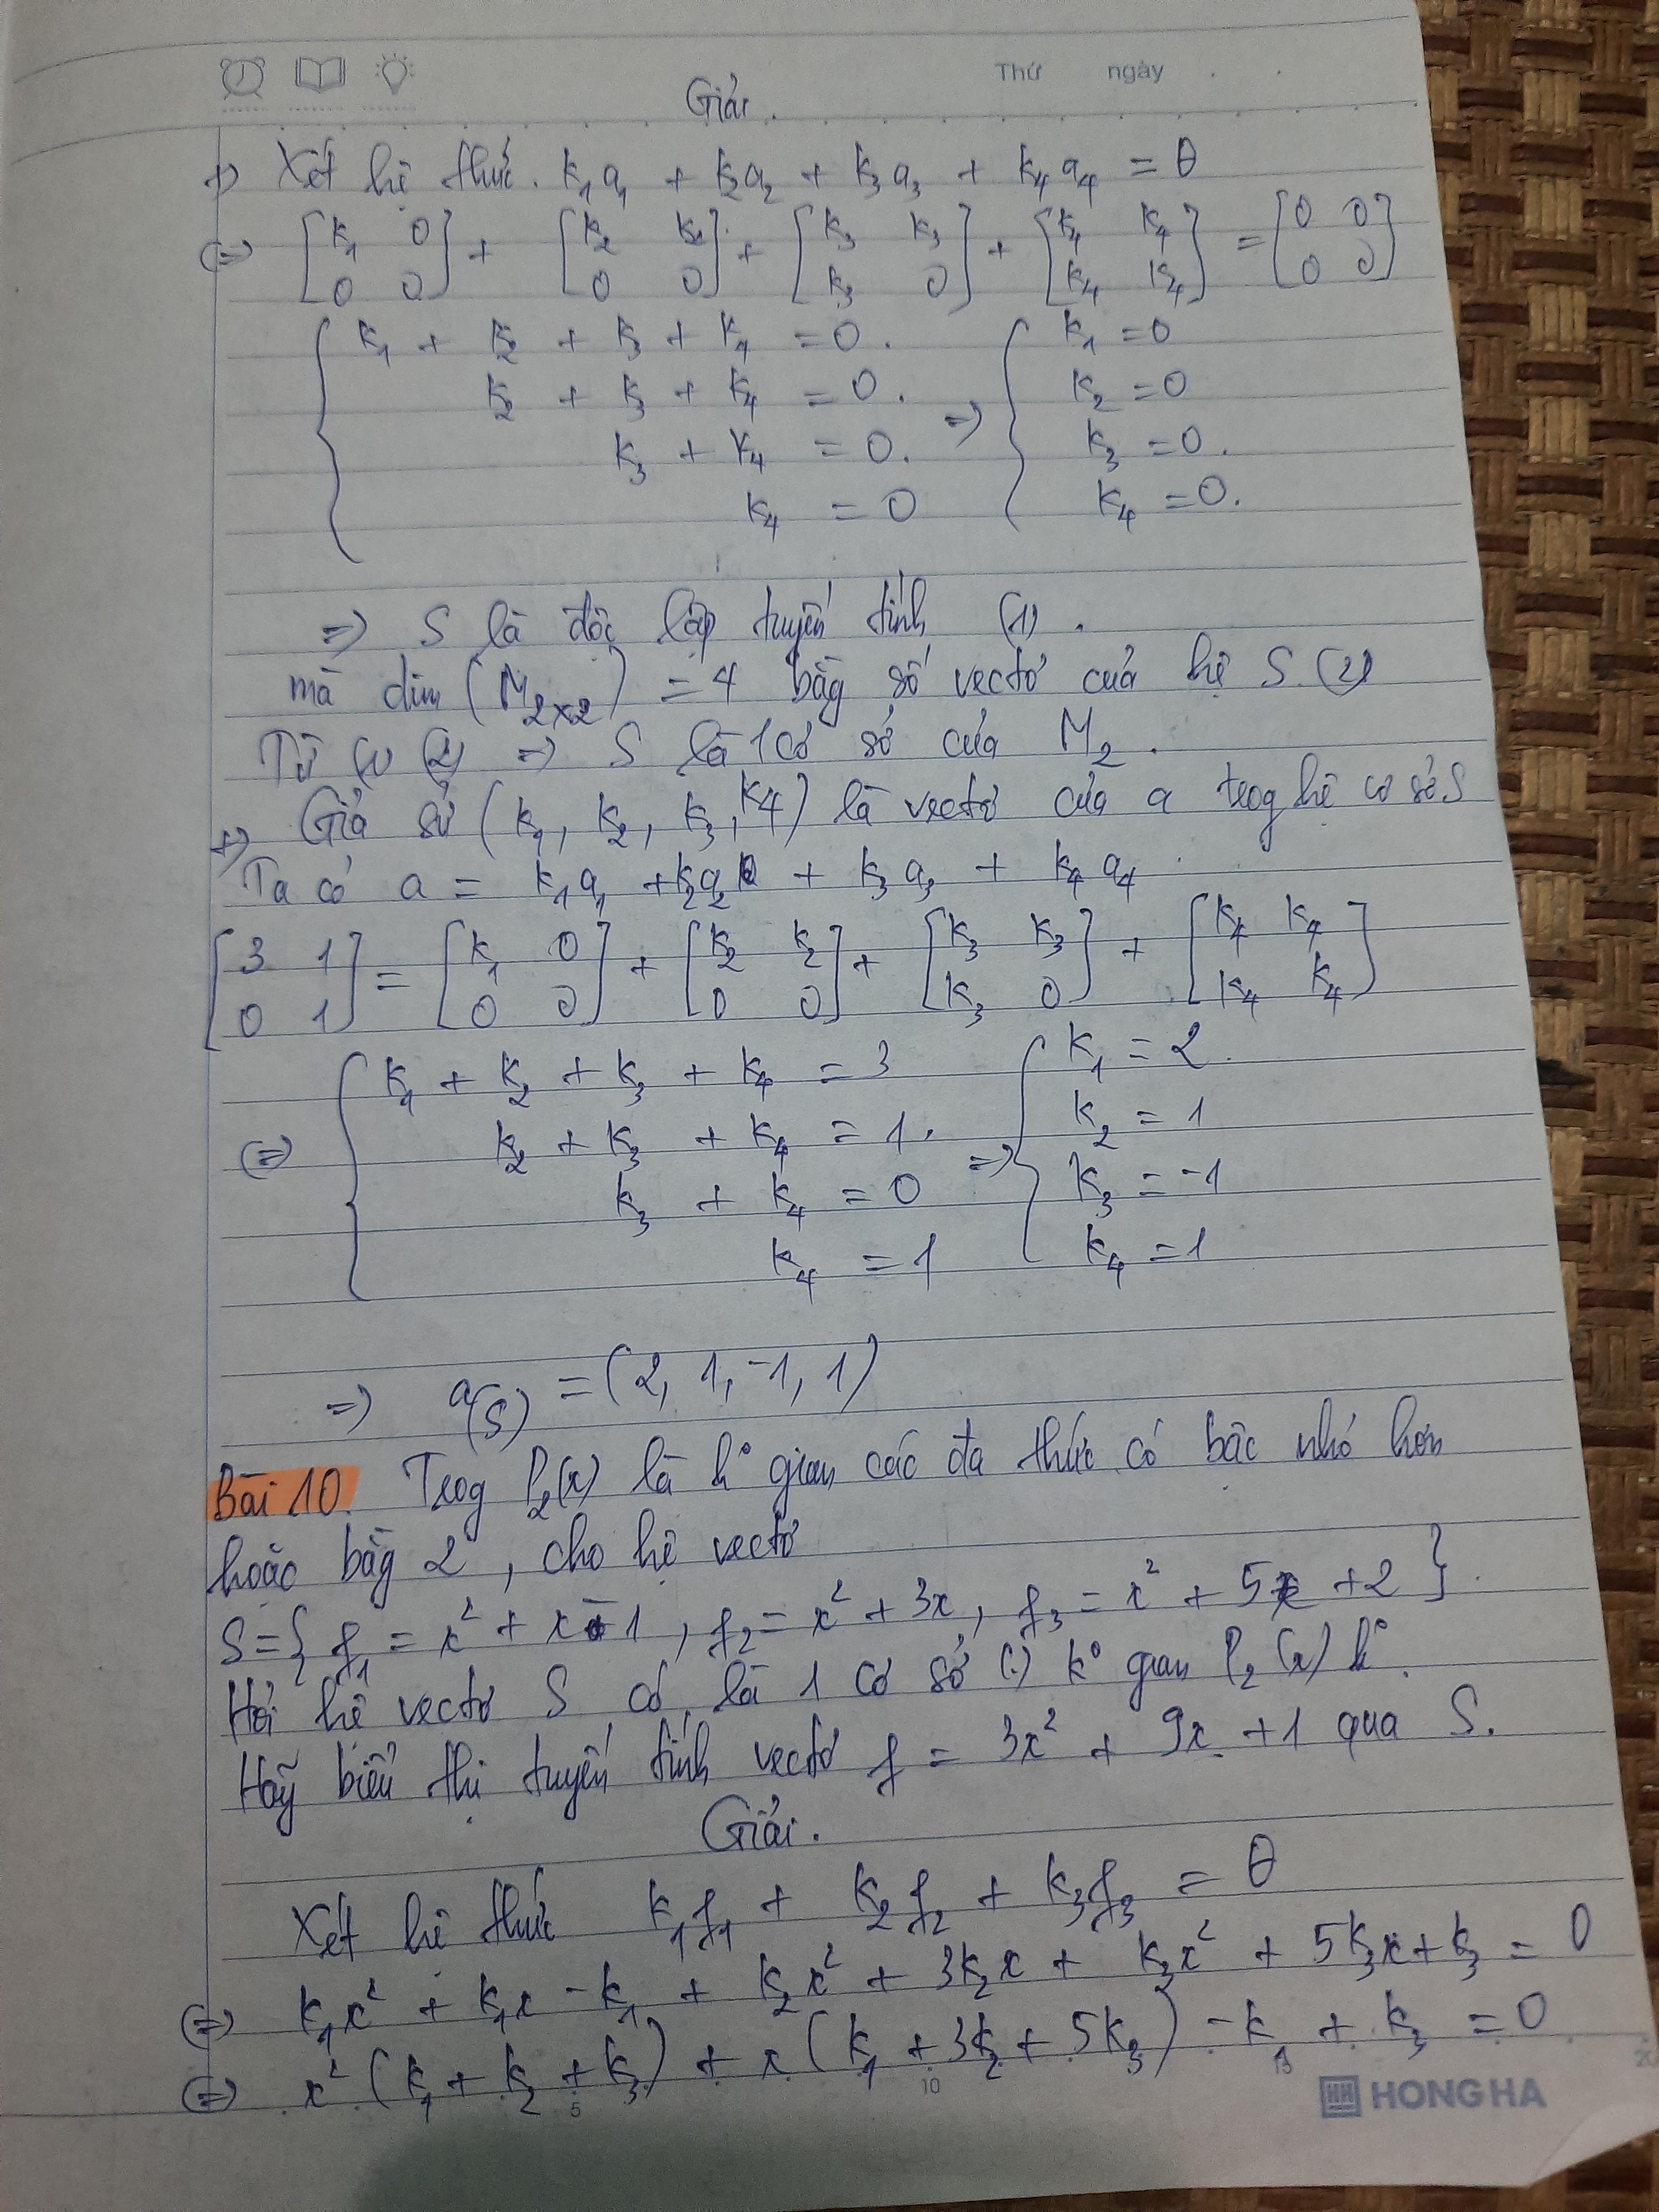 Thứ ngày
Giải.
+) Xét hệ thức. k₁a₁ + k₂a₂ + k₃a₃ + k₄a₄ = θ
(=) [k₁ 0; 0 0] + [k₂ k₂; 0 0] + [k₃ k₃; k₃ 0] + [k₄ k₄; k₄ k₄] = [0 0; 0 0]
{ k₁ + k₂ + k₃ + k₄ = 0. { k₁ = 0
k₂ + k₃ + k₄ = 0. k₂ = 0
k₃ + k₄ = 0. =) k₃ = 0.
k₄ = 0 k₄ = 0.
=) S là độc lập tuyến tính (1).
mà dim (M₂ₓ₂) = 4 bằg số vectơ của hệ S. (2)
Từ (1) (2) =) S là 1 cơ sở của M₂.
+) Giả sử (k₁, k₂, k₃, k4) là vectơ của a trog hệ cơ sở S
Ta có a = k₁a₁ + k₂a₂ + k₃a₃ + k₄a₄
[3 1; 0 1] = [k₁ 0; 0 0] + [k₂ k₂; 0 0] + [k₃ k₃; k₃ 0] + [k₄ k₄; k₄ k₄]
{ k₁ + k₂ + k₃ + k₄ = 3 { k₁ = 2.
k₂ + k₃ + k₄ = 1. k₂ = 1
(=) k₃ + k₄ = 0 =) k₃ = -1
k₄ = 1 k₄ = 1
=) a(S) = (2, 1, -1, 1)
Bài 10. Trog P₂(x) là k° gian các đa thức có bậc nhỏ hơn
hoặc bằg 2, cho hệ vectơ
S = { f₁ = x² + x - 1, f₂ = x² + 3x, f₃ = x² + 5x + 2 }.
Hỏi hệ vectơ S có là 1 cơ sở (:) k° gian P₂(x) k°.
Hãy biểu thị tuyến tính vectơ f = 3x² + 9x + 1 qua S.
Giải.
Xét hệ thức k₁f₁ + k₂f₂ + k₃f₃ = θ
(=) k₁x² + k₁x - k₁ + k₂x² + 3k₂x + k₃x² + 5k₃x + k₃ = 0
(=) x² (k₁ + k₂ + k₃) + x (k₁ + 3k₂ + 5k₃) - k₁ + k₃ = 0
5 10 15 20
HONG HA